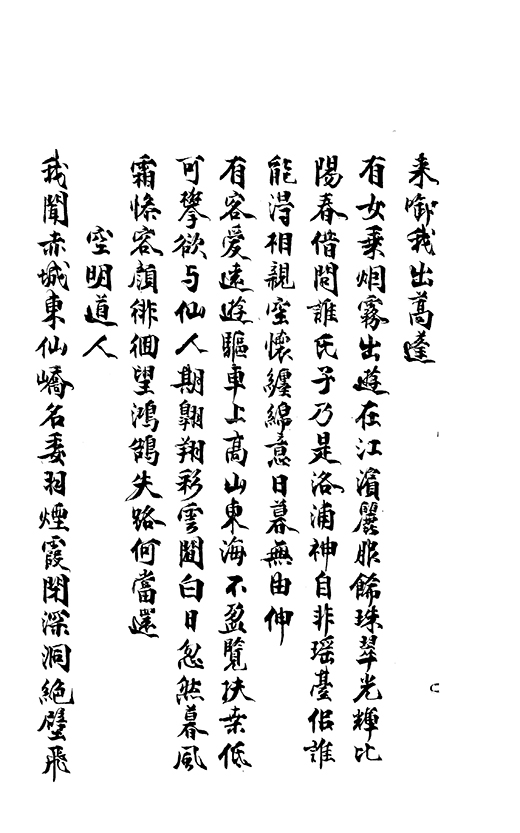 來銜我出蒿蓬
有女乘烟霧出遊在江濱麗服飾珠翠光輝比
陽春借問誰氏子乃是洛浦神自非瑶臺侣誰
能得相親空懷纏綿意日暮無由伸
有客愛遠遊驅車上高山東海不盈覽扶桒低
可攀欲与仙人期翱翔彩雲間白日忽然暮風
霜惨容顔徘徊望鴻鵠失路何當還
空明道人
我聞赤城東仙嶠名委羽煙霞閉深洞絶壁飛